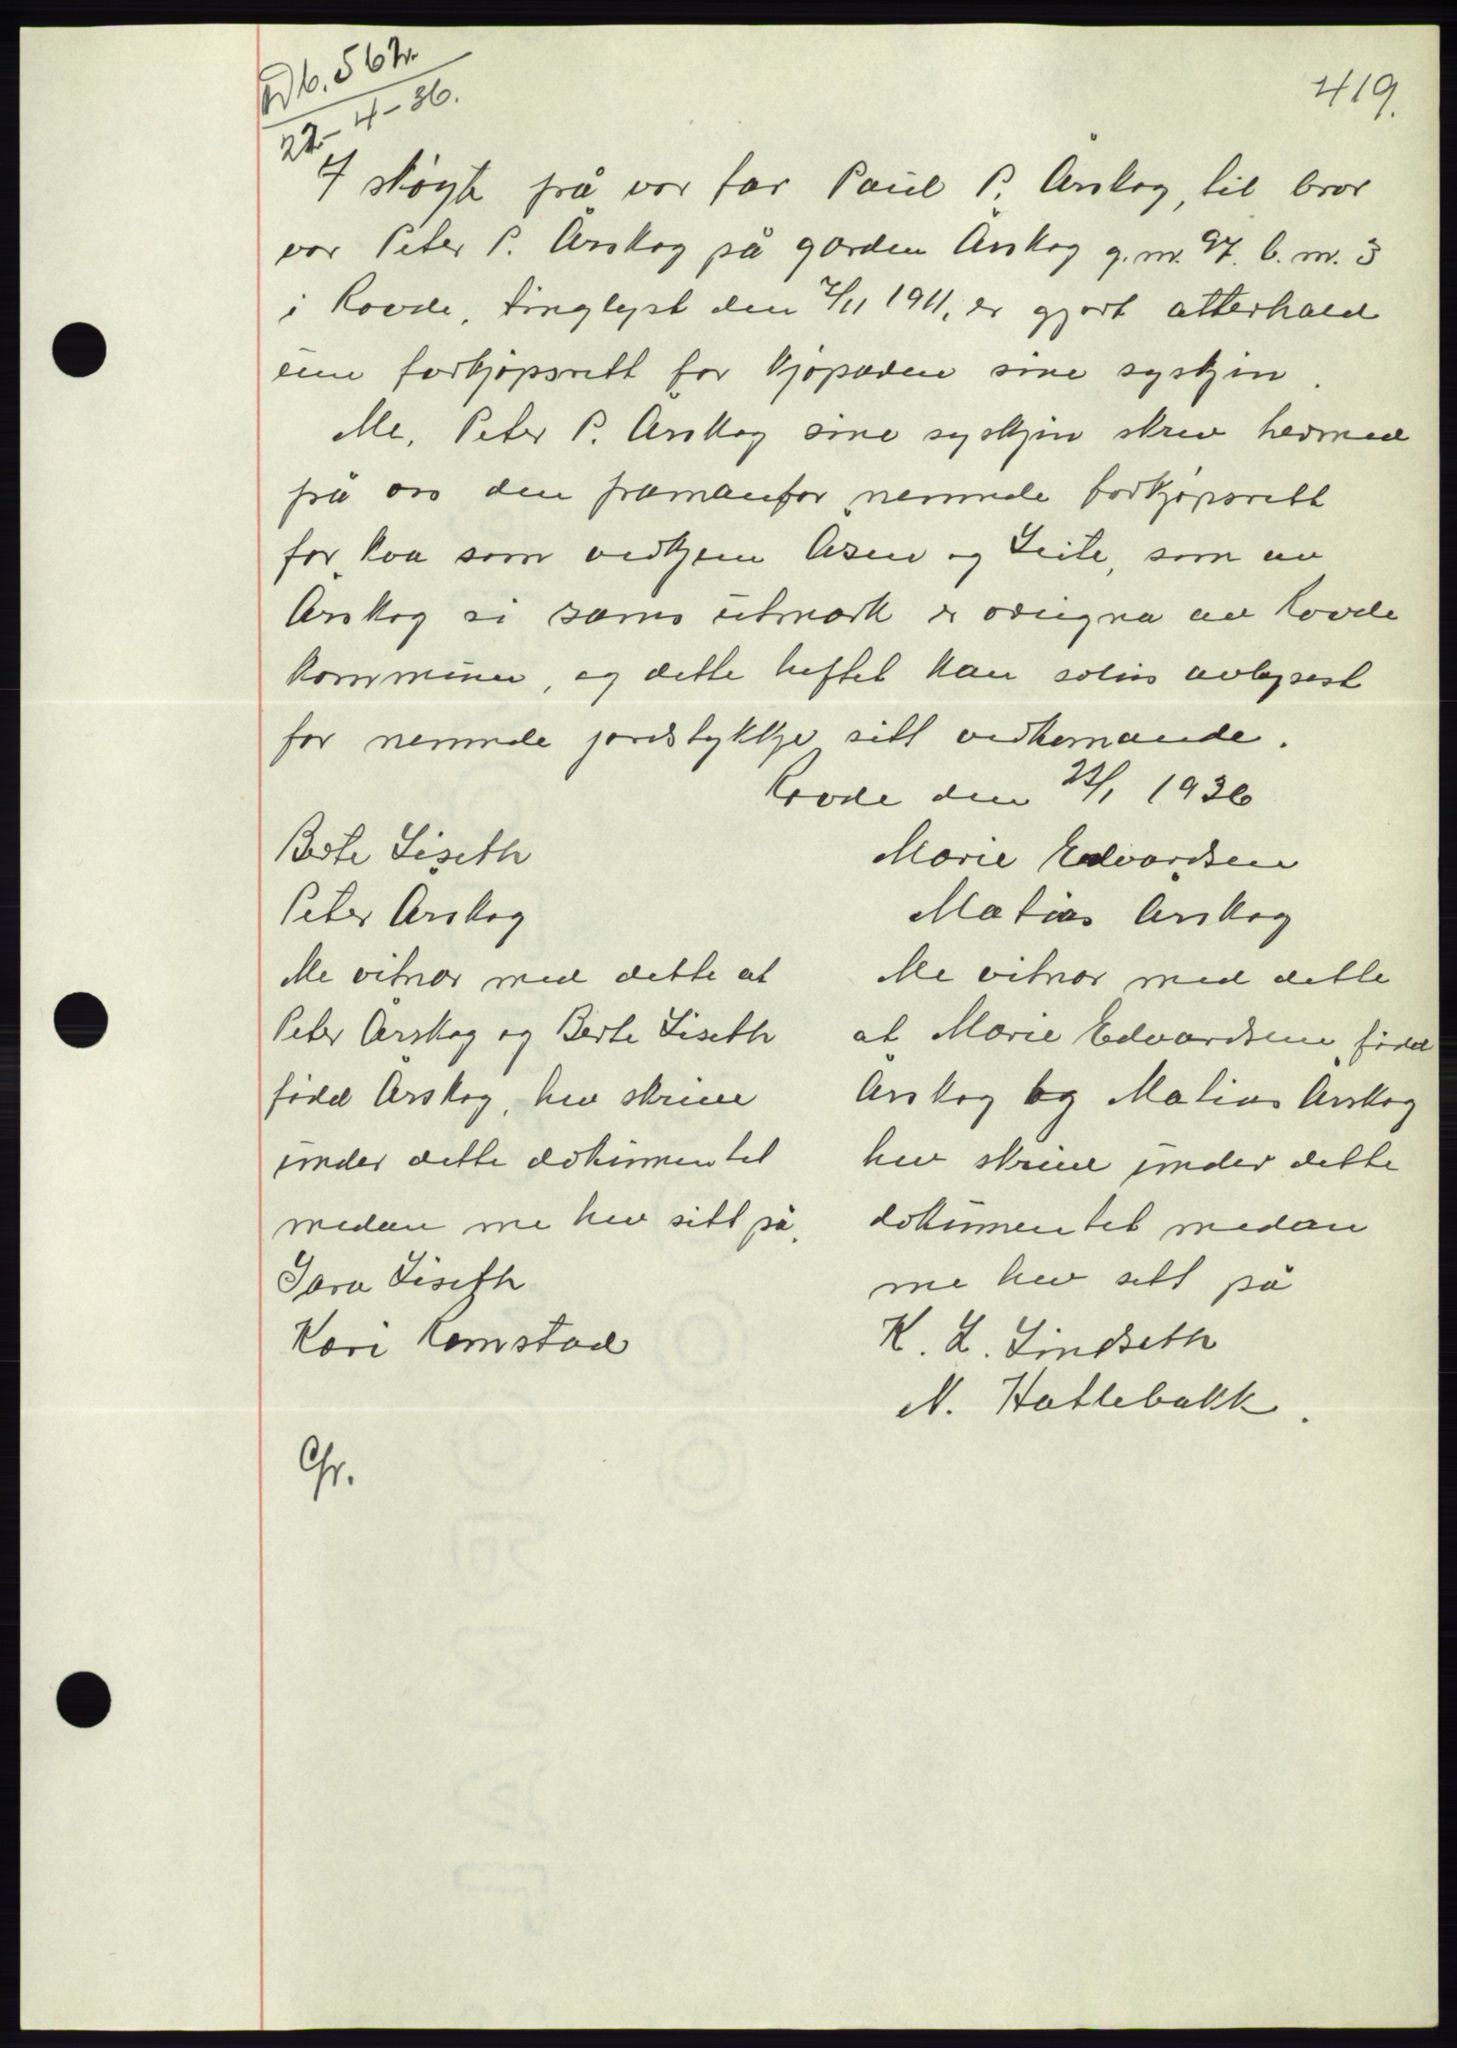 Db. 567.
22-4-36.
419.
I skøyte frå vor far Paul P. Årskog, til bror
vor Peter P. Årskog på garden Årskog g. nr. 97. b. nr. 3
i Rovde, tinglyst den 7/11 1911, er gjort atterhald
um forkjøpsrett for kjøparen sine syskjin.
Me, Peter P. Årskog sine syskjin skriv hermed
frå oss den framanfor nemnde forkjøpsrett
for kva som vedkjem Åsen og Leite, som av
Årskog si sams utmark er oreigna av Rovde
kommune, og dette heftet kan soleis avlysast
for nemnde jordstykkje sitt vedkomande.
Rovde den 22/1 1936
Berte Liseth
Peter Årskog
Me vitnar med dette at
Peter Årskog og Berte Liseth
född Årskog, hev skrive
under dette dokumentet
medan me hev sitt på.
Jara Liseth
Kari Ramstad
Marie Edvardsen
Matias Årskog
Me vitnar med dette
at Marie Edvardsen född
Årskog og Matias Årskog
hev skrive under dette
dokumentet medan
me hev sett på
K. L. Lindseth
N. Hatlebakk.
Gr.